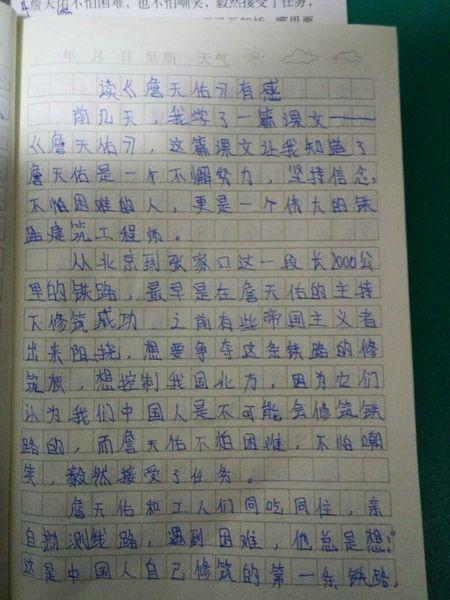 詹天佑不怕困难，也不怕嘲笑，毅然接受了任务，
年 月 日 星期 天气
读《詹天佑》有感
前几天，我学了一篇课文——
《詹天佑》，这篇课文让我知道了
詹天佑是一个不懈努力，坚持信念，
不怕困难的人，更是一个伟大的铁
路建筑工程师。
从北京到张家口这一段长2000公
里的铁路，最早是在詹天佑的主持
下修筑成功．之前有些帝国主义者
出来阻挠，想要争夺这条铁路的修
筑权，想控制我国北方，因为它们
认为我们中国人是不可能会修筑铁
路的，而詹天佑不怕困难，不怕嘲
笑，毅然接受了任务。
詹天佑和工人们同吃同住，亲
自勘测线路，遇到困难，他总是想："
这是中国人自己修筑的第一条铁路，